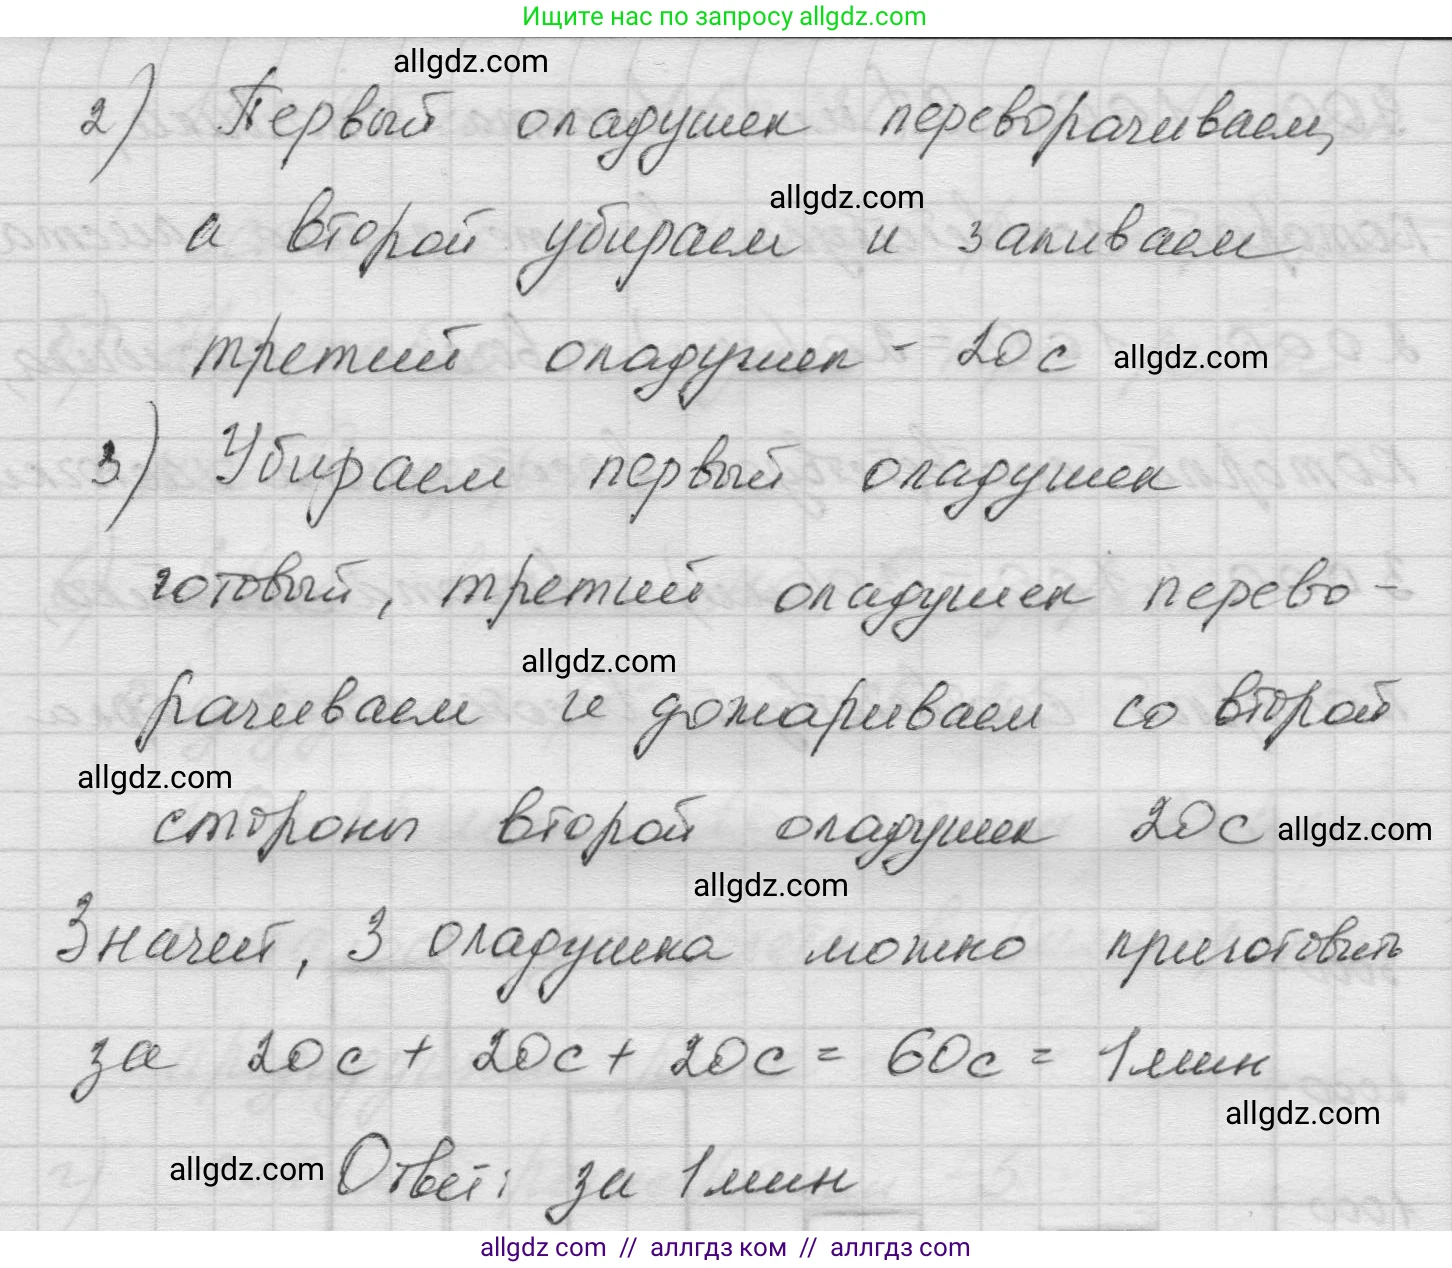 Ищите нас по запросу allgdz.com
allgdz.com
2) Первый оладушек переворачиваем,
allgdz.com
а второй убираем и заливаем
третий оладушек - 20 с allgdz.com
3) Убираем первый оладушек
готовый, третий оладушек перево-
allgdz.com
рачиваем и дожариваем со второй
allgdz.com
стороны второй оладушек 20 с allgdz.com
allgdz.com
Значит, 3 оладушка можно приготовить
за 20 с + 20 с + 20 с = 60 с = 1 мин
allgdz.com
allgdz.com Ответ: за 1 мин
allgdz com // аллгдз ком // аллгдз com